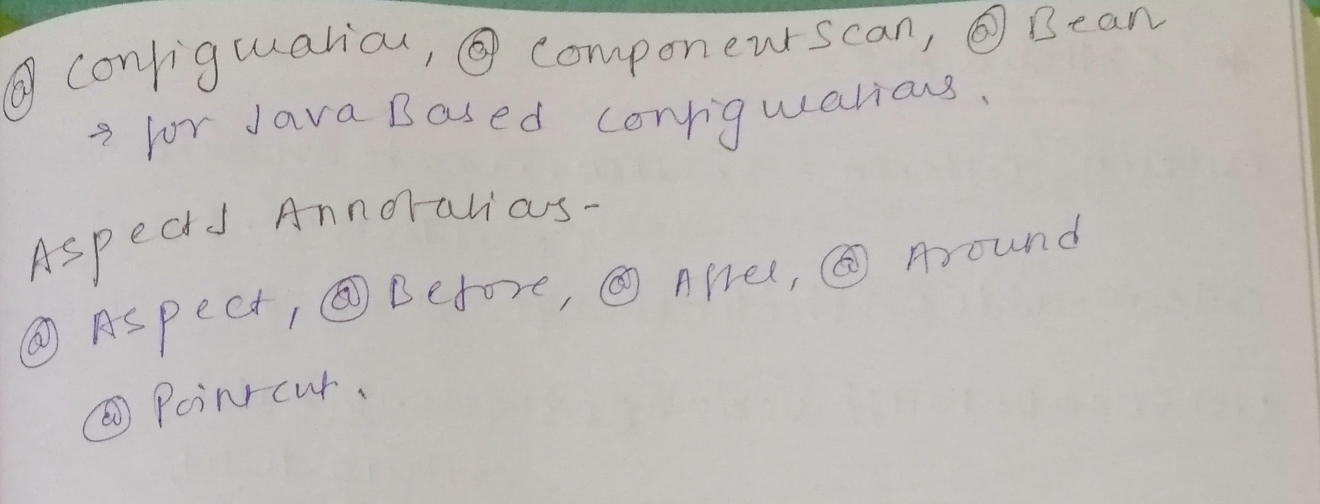 @ Configuration, @ ComponentScan, @ Bean
→ for Java Based configurations.
Aspects Annotations-
@ Aspect, @ Before, @ After, @ Around
@ Pointcut.